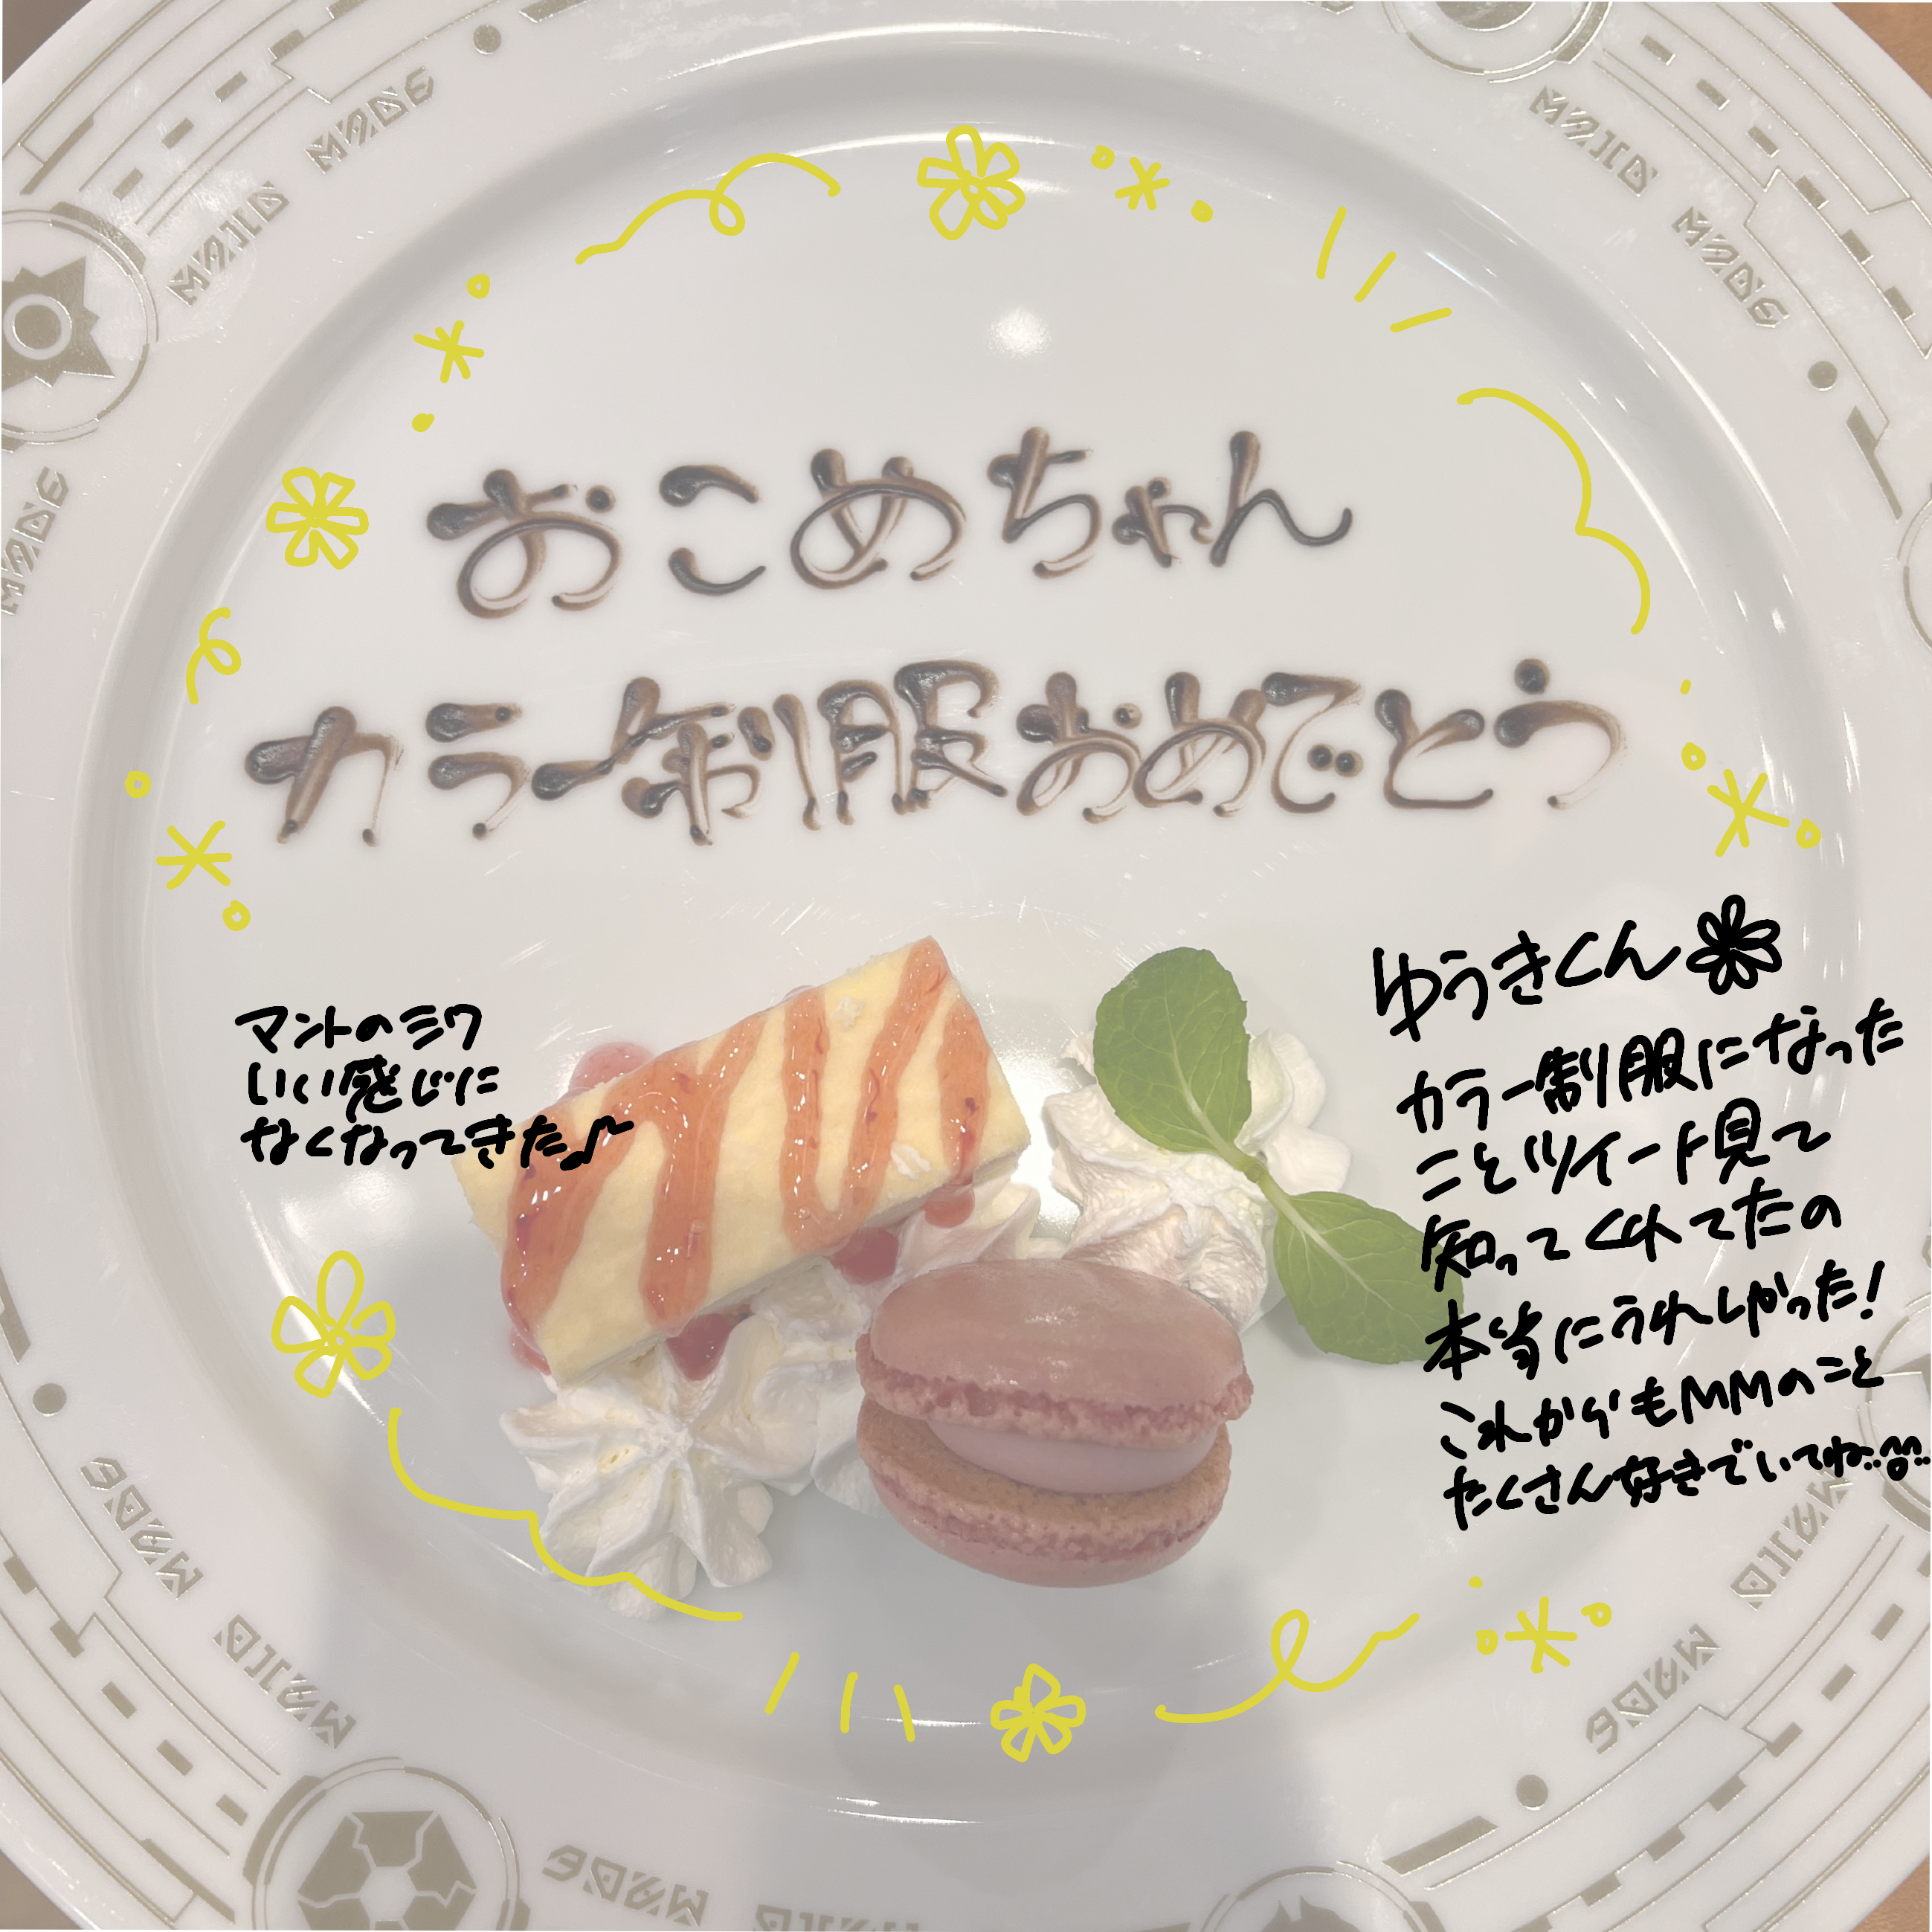 MAID MADE
MAID MADE
MADE
おこめちゃん
カラー制服おめでとう
マントのシワ
いい感じに
なくなってきた♪
ゆうきくん
カラー制服になった
ことツイート見て
知ってくれてたの
本当にうれしかった!
これからもMMのこと
たくさん好きでいてね
MADE
MAID
MAID
MADE
MADE
MAID